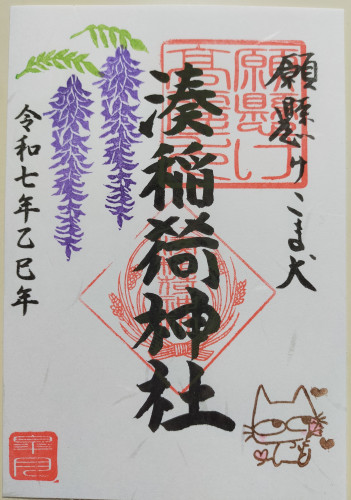 願懸けこま犬
湊稲荷神社
令和七年乙巳年
願懸け